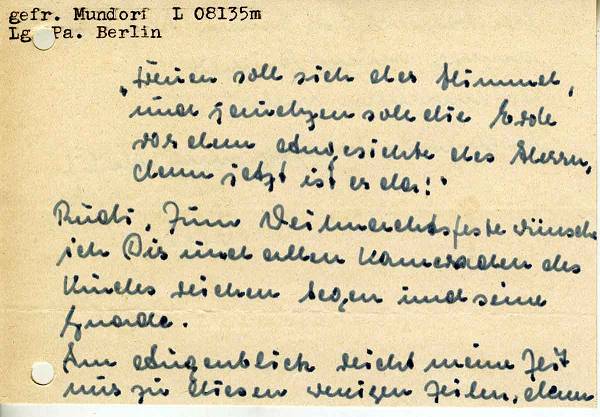 gefr. Mundorf L 08135m
Lg. Pa. Berlin
„Freuen soll sich der Himmel,
und jauchzen soll die Erde
vor dem Angesichte des Herrn,
denn jetzt ist er da!"
Rudi, Zum Weihnachtsfeste wünsche
ich Dir und allen Kameraden des
Kindes reichen Segen und seine
Gnade.
Im Augenblick reicht meine Zeit
nur zu diesen wenigen Zeilen, denn